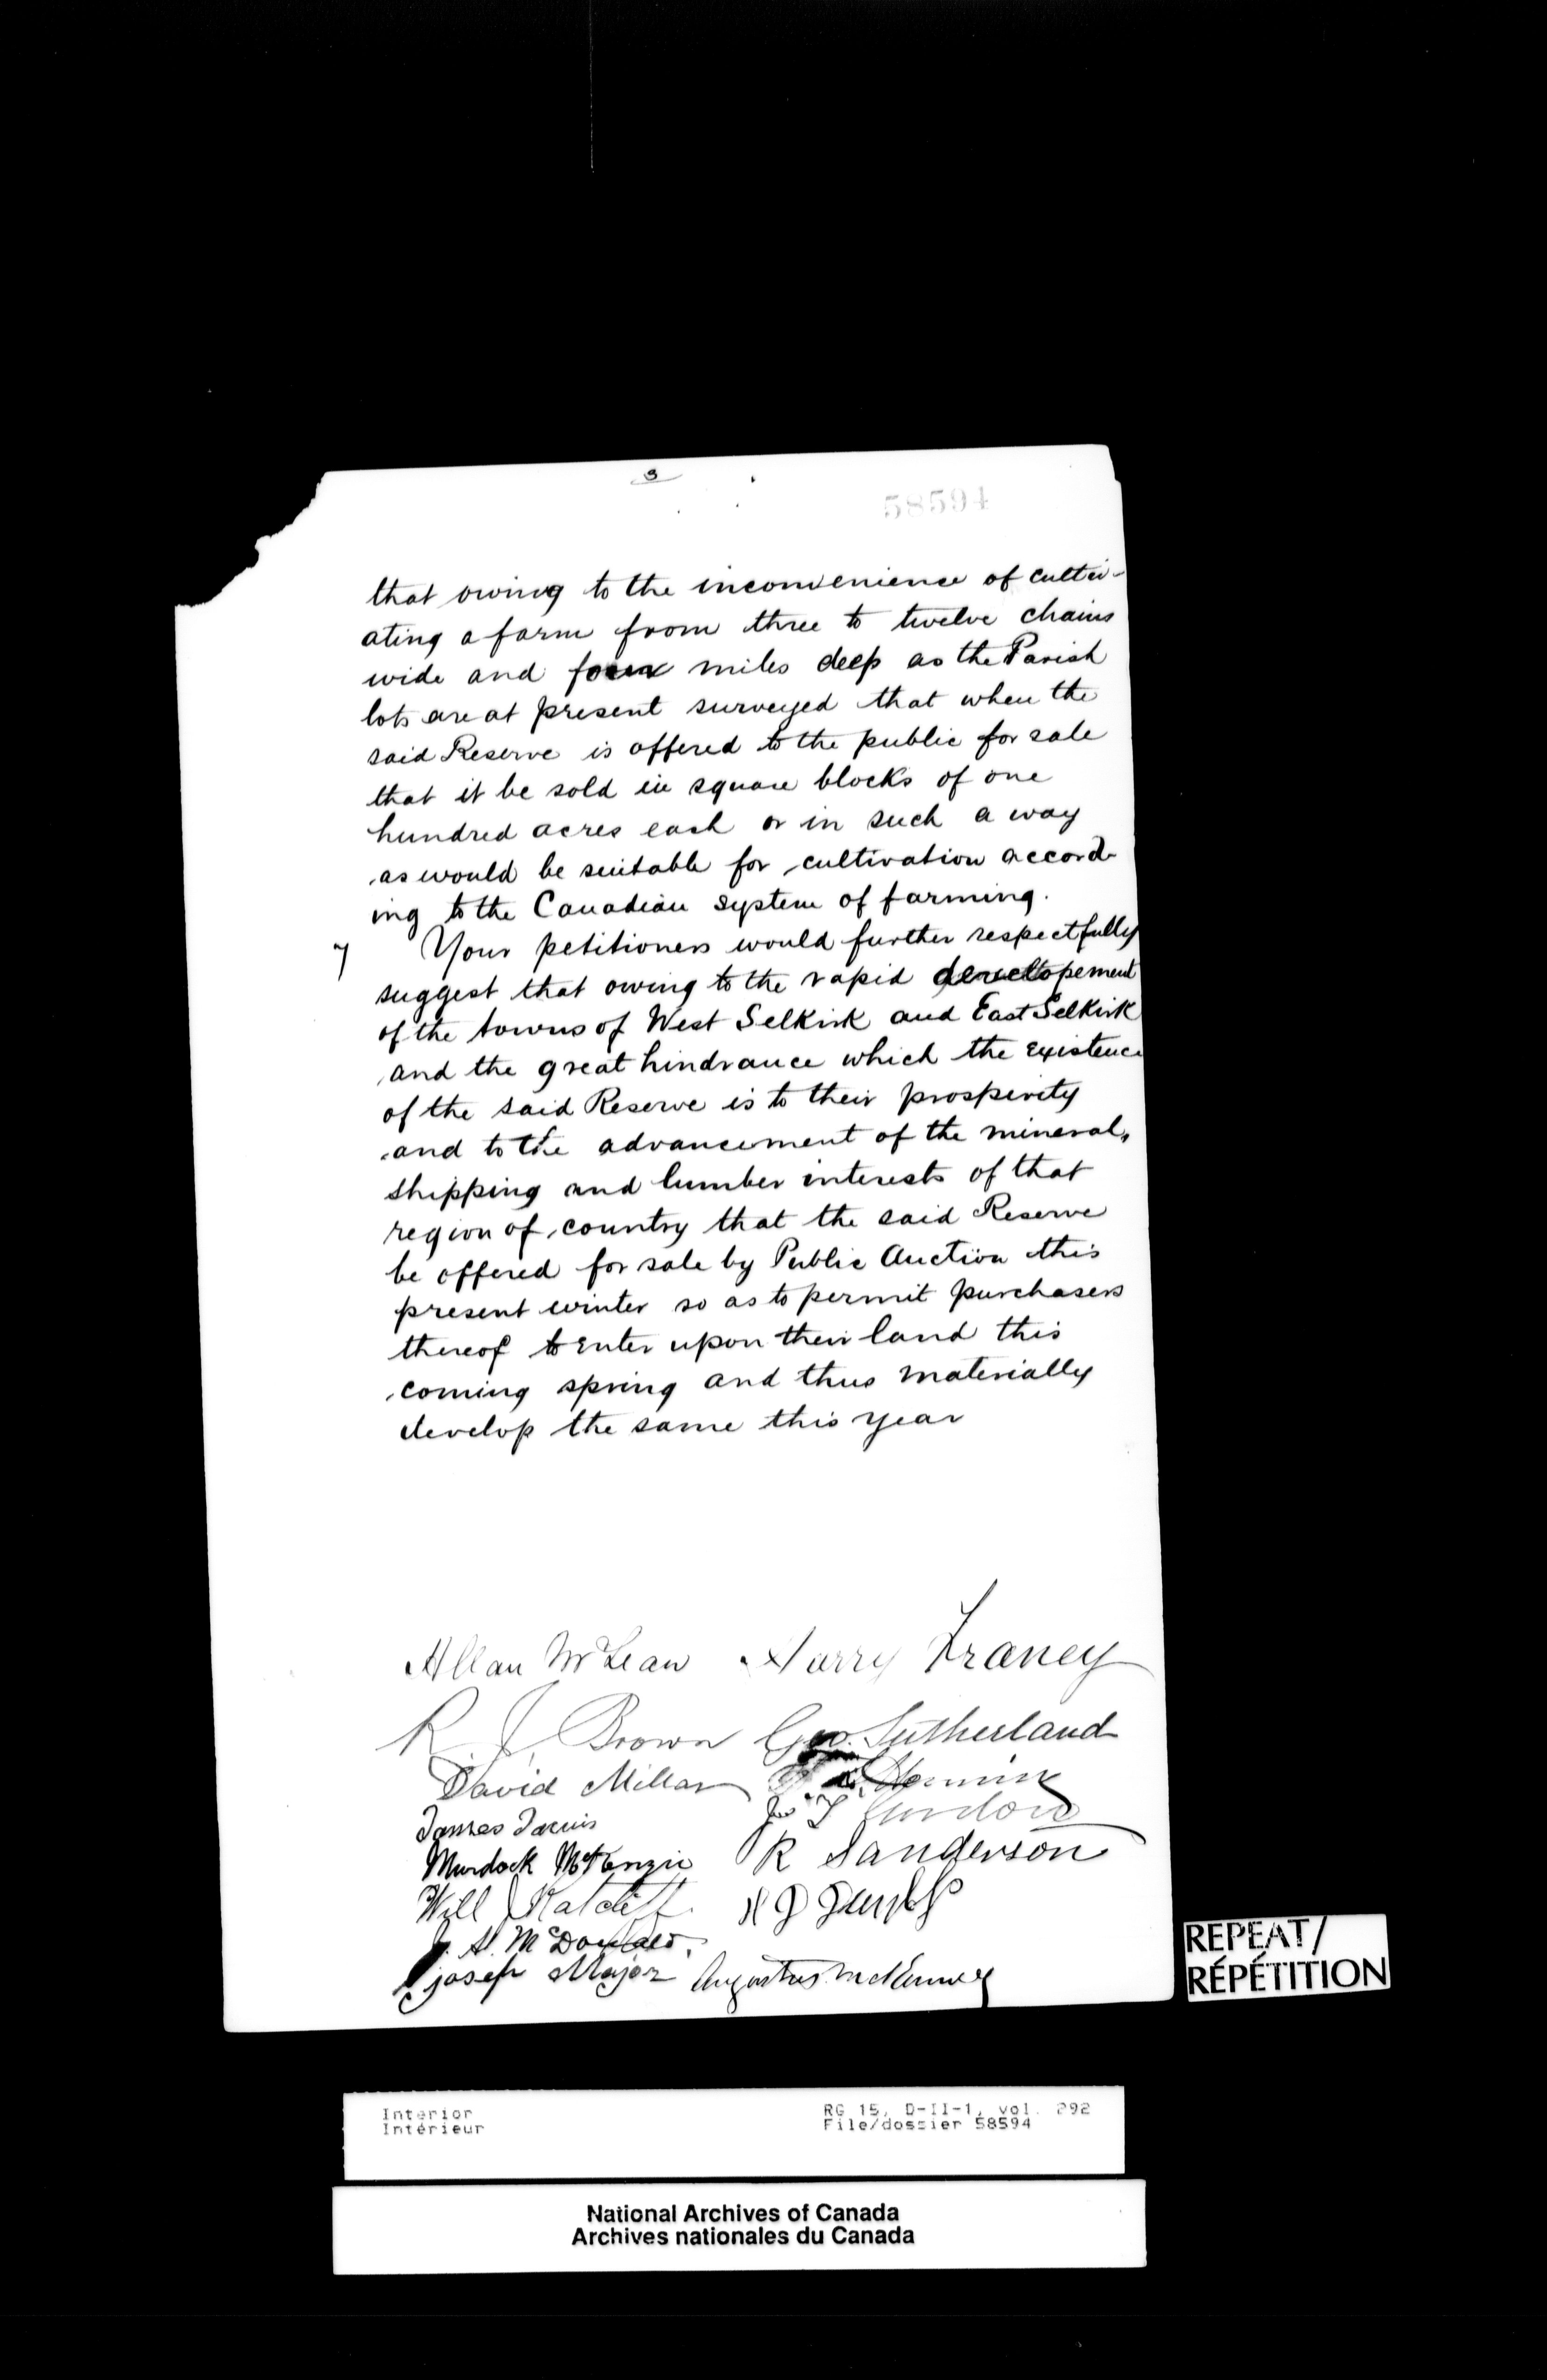 3
58594
that owing to the inconvenience of culti-
ating a farm from three to twelve chains
wide and four miles deep as the Parish
lots are at present surveyed that when the
said Reserve is offered to the public for sale
that it be sold in square blocks of one
hundred acres each or in such a way
as would be suitable for cultivation accord-
ing to the Canadian system of farming.
7 Your petitioners would further respectfully
suggest that owing to the rapid developement
of the towns of West Selkirk and East Selkirk
and the great hindrance which the existence
of the said Reserve is to their prosperity
and to the advancement of the mineral,
shipping and lumber interests of that
region of country that the said Reserve
be offered for sale by Public Auction this
present winter so as to permit purchasers
thereof to enter upon their land this
coming spring and thus materially
develop the same this year
Allan McLean Harry Franey
R J Brown Geo. Sutherland
David Millar
James
Murdock McKenzie R Sanderson
Will J
A. McDonald.
josep Major Augustus
REPEAT/
RÉPÉTITION
Interior RG 15, D-II-1, vol. 292
Intérieur File/dossier 58594
National Archives of Canada
Archives nationales du Canada